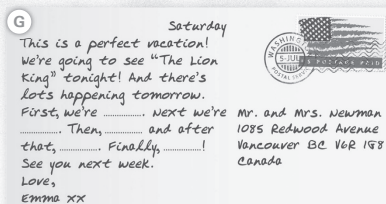 G
Saturday
This is a perfect vacation!
We're going to see "The Lion
King" tonight! And there's
lots happening tomorrow.
First, we're ............. Next we're
............. Then, ............ and after
that, ............. Finally, ............!
See you next week.
Love,
Emma xx
WASHING
5-JUL
POSTAL SERV
US POSTAGE PAID
Mr. and Mrs. Newman
1085 Redwood Avenue
Vancouver BC V6R 1G8
Canada